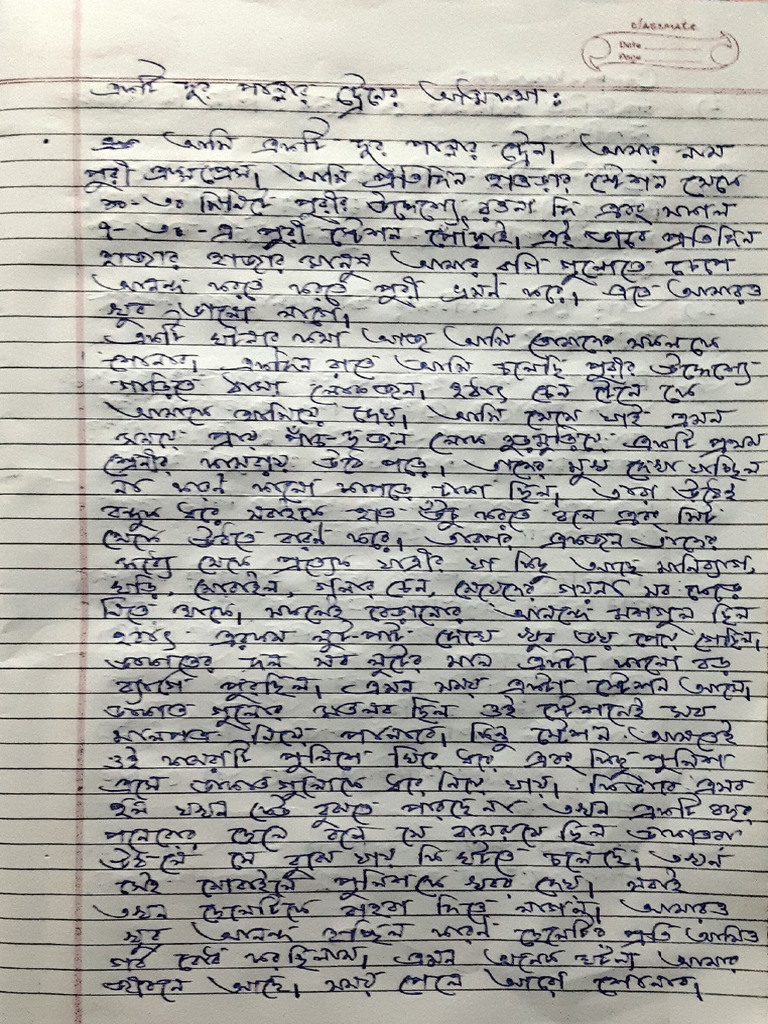 classmate
Date
Page
একটি দূর পাল্লার ট্রেনের আত্মকথা :
আমি একটি দূর পাল্লার ট্রেন। আমার নাম
পুরী এক্সপ্রেস। আমি প্রতিদিন হাওড়ার স্টেশন থেকে
১০-৩০ মিনিটে পুরীর উদ্দেশ্যে রওনা দি এবং সকাল
৭-৩৫-এ পুরী স্টেশন পৌঁছাই। এই ভাবে প্রতিদিন
হাজার হাজার মানুষ আমার বগি গুলোতে চেপে
আনন্দ করতে করতে পুরী ভ্রমণ করে। এতে আমারও
খুব ভালো লাগে।
একটি ঘটনার কথা আজ আমি তোমাদের সকলকে
শোনাব। একদিন রাতে আমি চলেছি পুরীর উদ্দেশ্যে
গাড়িতে ঠাসা লোকজন। হঠাৎ চেন টেনে কে
আমাকে থামিয়ে দেয়। আমি থেমে যাই এমন
সময়ে প্রায় পাঁচ-ছজন লোক হুড়মুড়িয়ে একটি প্রথম
শ্রেনীর কামরায় উঠে পড়ে। তাদের মুখ দেখা যাচ্ছিল
না কারণ কালো কাপড়ে ঢাকা ছিল। তারা উঠেই
বন্দুক ধরে সবাইকে হাত উঁচু করতে বলে এবং সিট
থেকে উঠতে বারণ করে। তারপর একজন তাদের
মধ্যে থেকে প্রত্যেক যাত্রীর যা কিছু আছে মানিব্যাগ,
ঘড়ি, মোবাইল, গলার চেন, মেয়েদের গয়না সব কেড়ে
নিতে থাকে। সকলেই বেড়ানোর আনন্দে মশগুল ছিল
হঠাৎ এরকম লুট-পাট দেখে খুব ভয় পেয়ে গেছিল।
ডাকাতের দল সব লুটের মাল একটা কালো বড়
ব্যাগে পুরছিল। এমন সময় একটা স্টেশন আসে।
ডাকাত গুলোর মতলব ছিল ওই স্টেশনেই সব
মালপত্র নিয়ে পালাবে। কিন্তু স্টেশন আসতেই
ওই কামরাটি পুলিশে ঘিরে ধরে এবং কিছু পুলিশ
এসে ডাকাতগুলোকে ধরে নিয়ে যায়। কিভাবে এসব
হল যখন কেউ বুঝতে পারছে না তখন একটি বছর
পনেরোর ছেলে বলে সে বাথরুমে ছিল ডাকাতরা
উঠলে সে বুঝে যায় কি ঘটতে চলেছে। তখন
সেই মোবাইলে পুলিশকে খবর দেয়। সবাই
তখন ছেলেটিকে বাহবা দিতে লাগল। আমারও
খুব আনন্দ হচ্ছিল কারণ ছেলেটির প্রতি আমিও
গর্ব বোধ করছিলাম। এমন অনেক ঘটনা আমার
জীবনে আছে। সময় পেলে আরো শোনাব।